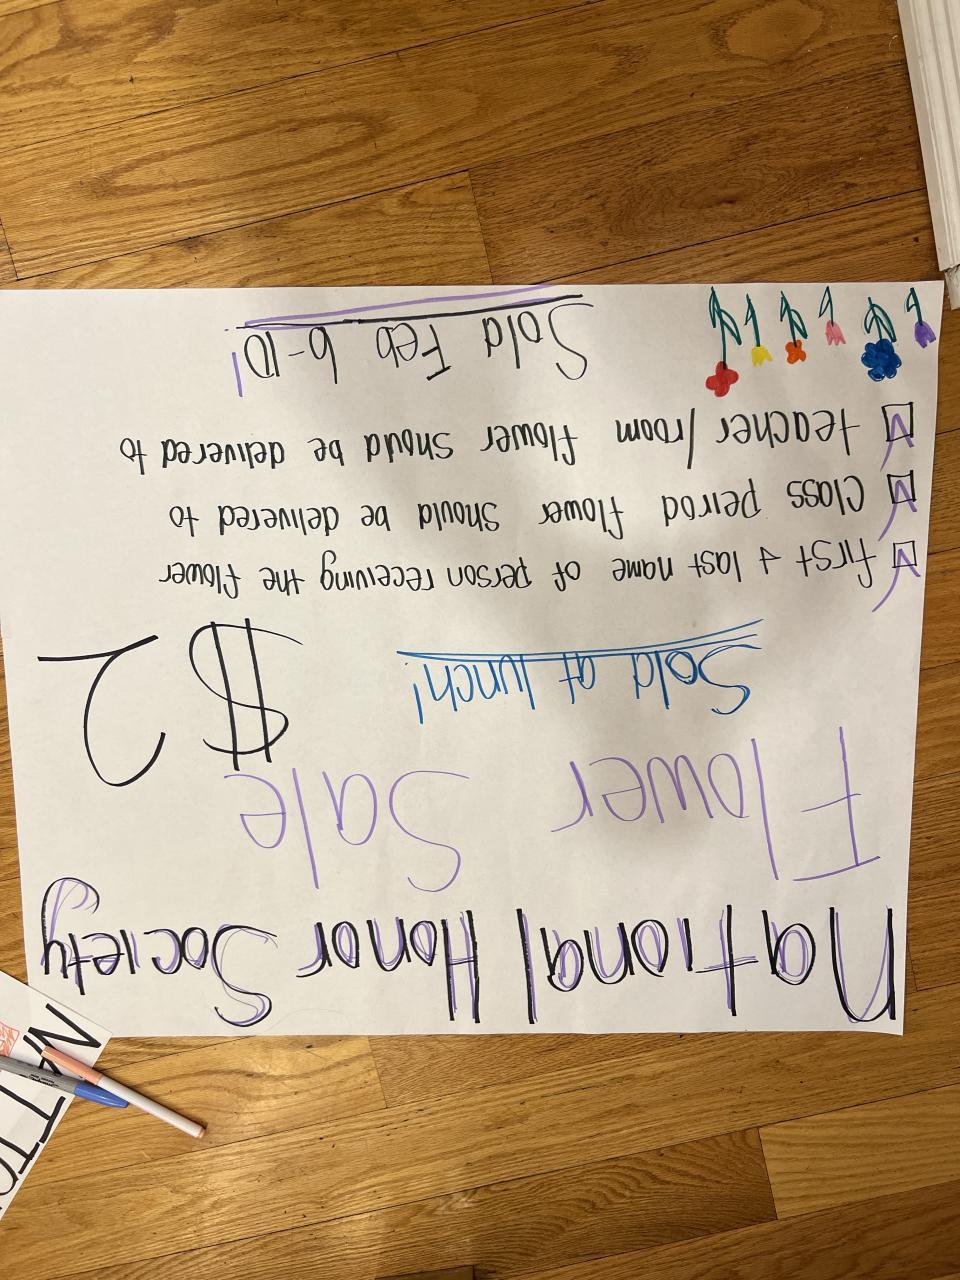 National Honor Society
Flower Sale
Sold at lunch! $2
first & last name of person receiving the flower
class peirod flower should be delivered to
teacher/room flower should be delivered to
Sold Feb 6-10!